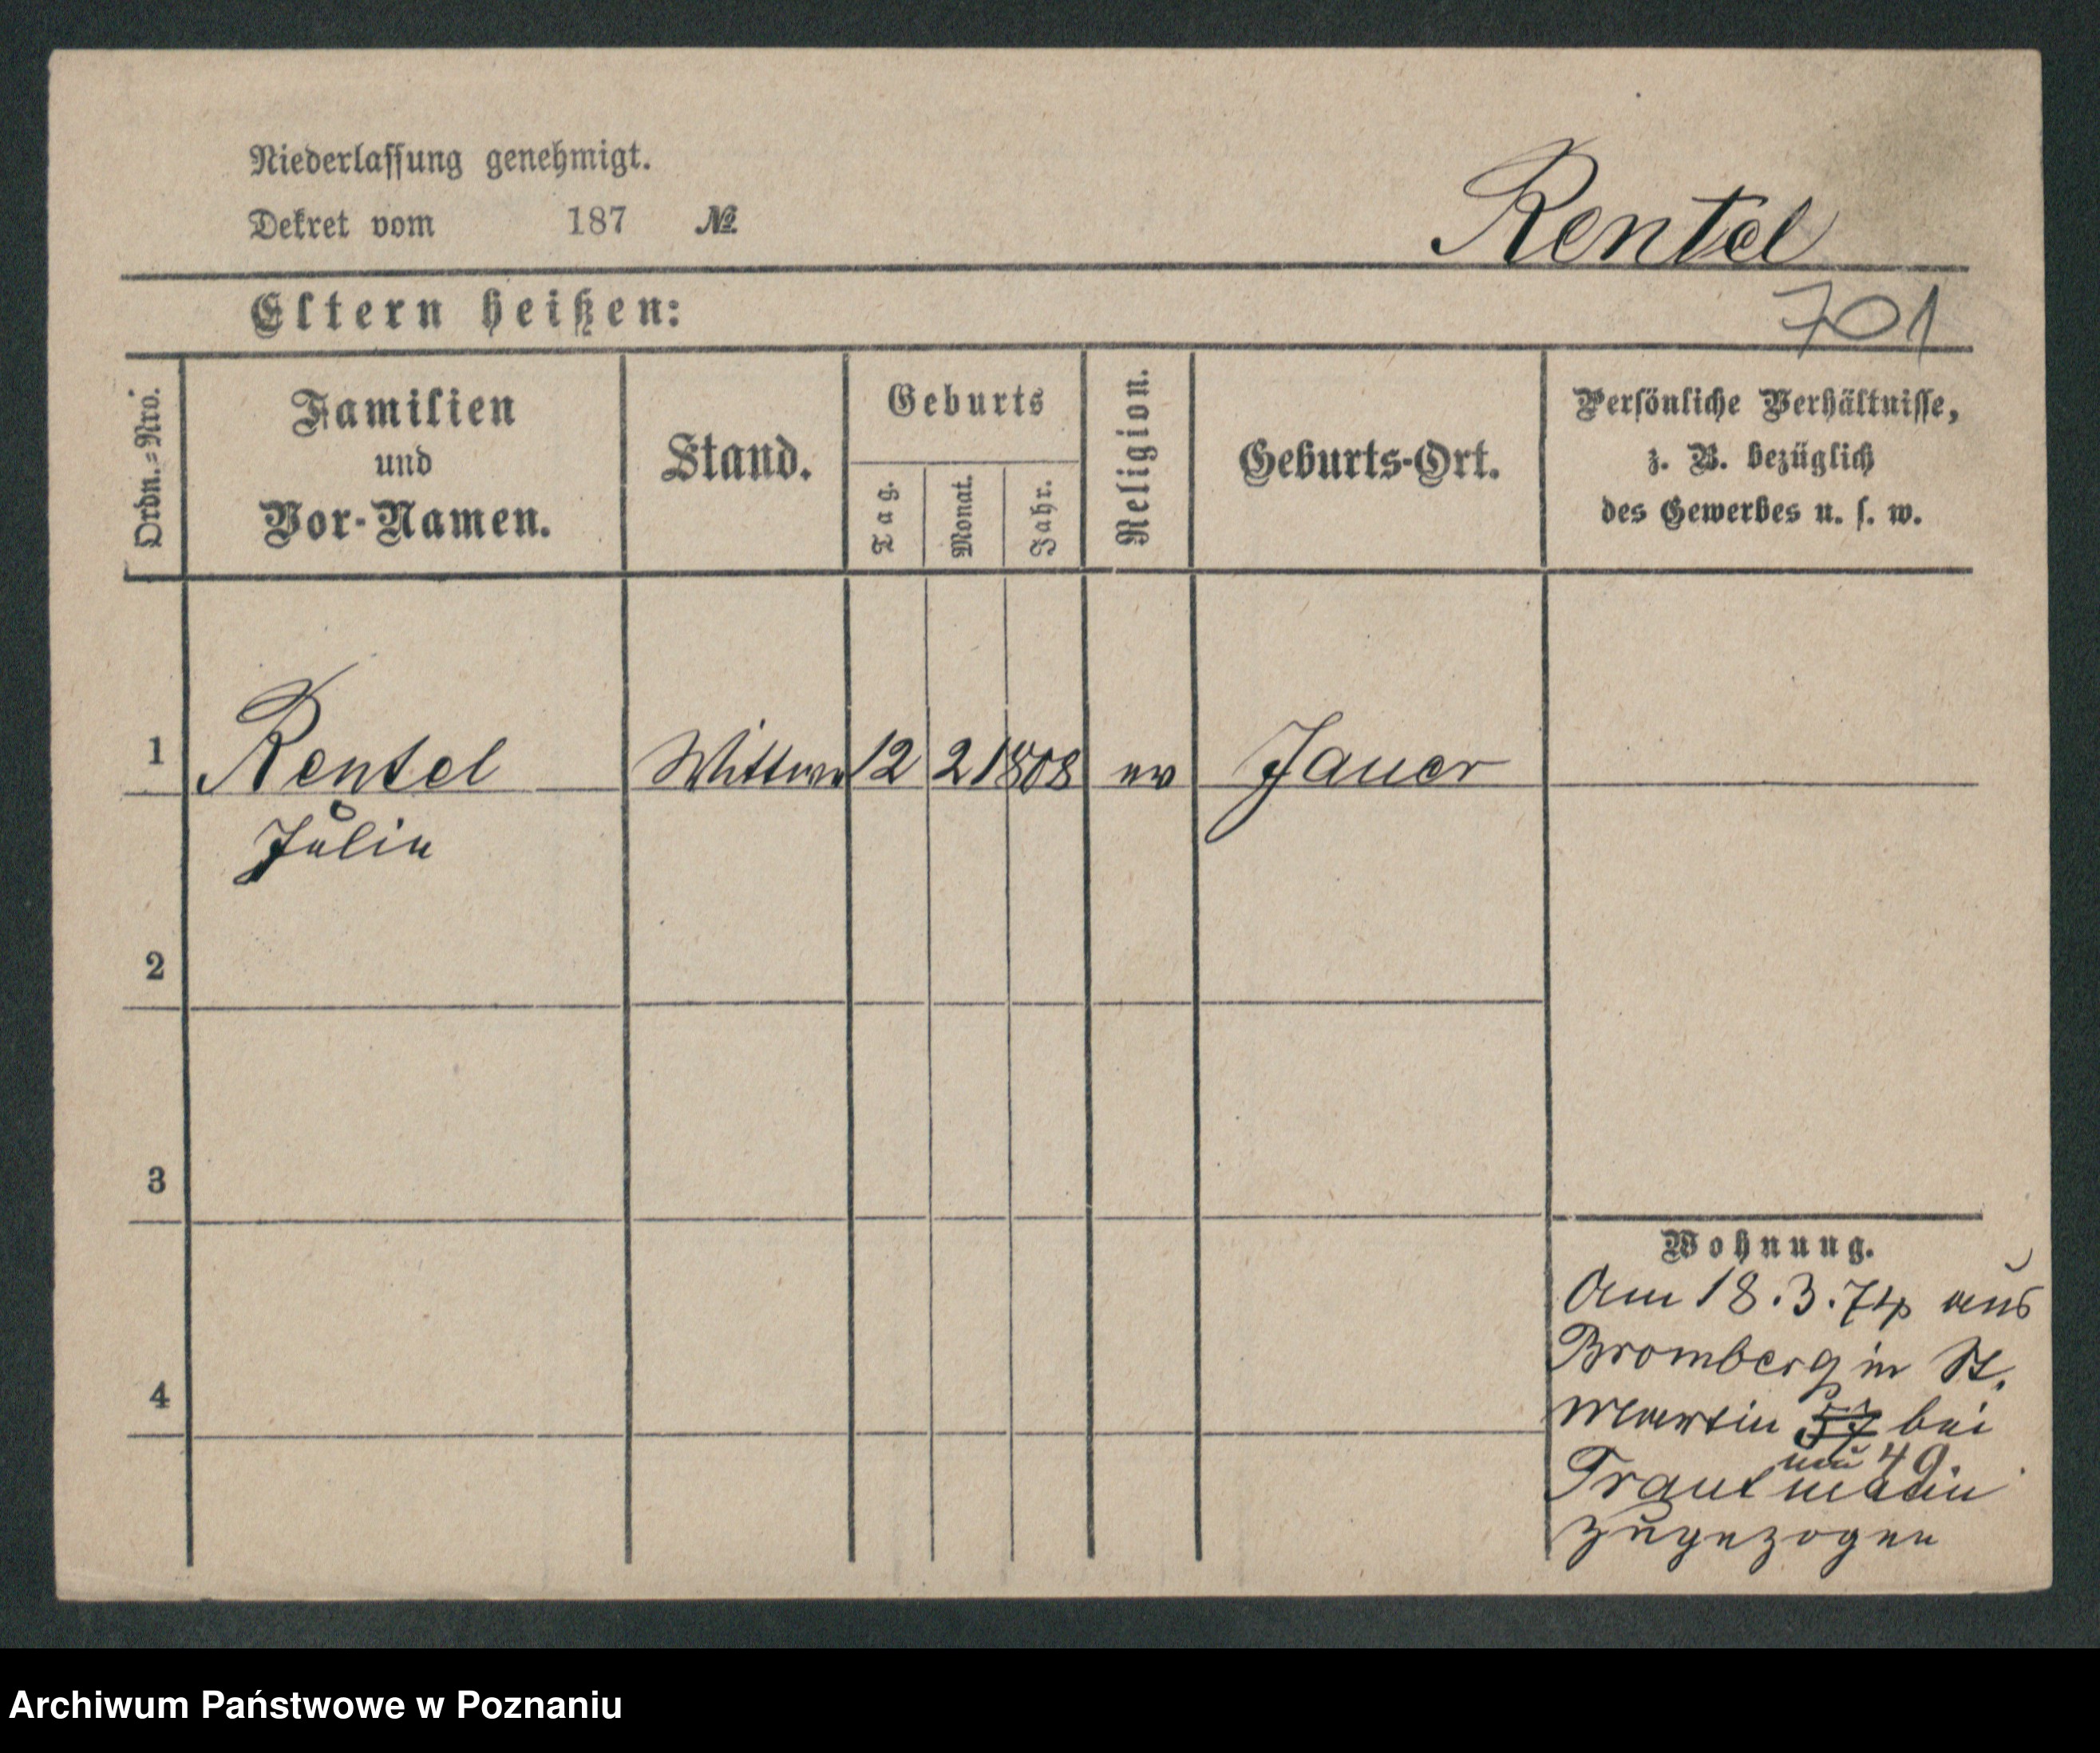 Niederlassung genehmigt.
Dekret vom 187 №
Rentel
Eltern heißen:
701
Ordn.=Nro.
Familien
und
Vor-Namen.
Stand.
Geburts
Tag.
Monat.
Jahr.
Religion.
Geburts-Ort.
Persönliche Verhältnisse,
z. B. bezüglich
des Gewerbes u. s. w.
1 Rentel Wittwe 12 2 1808 ev Jauer
Julie
2
3
4
Wohnung.
Am 18.3.74 aus
Bromberg in St.
Martin 57 bei
49.
Trautmann
zugezogen
Archiwum Państwowe w Poznaniu